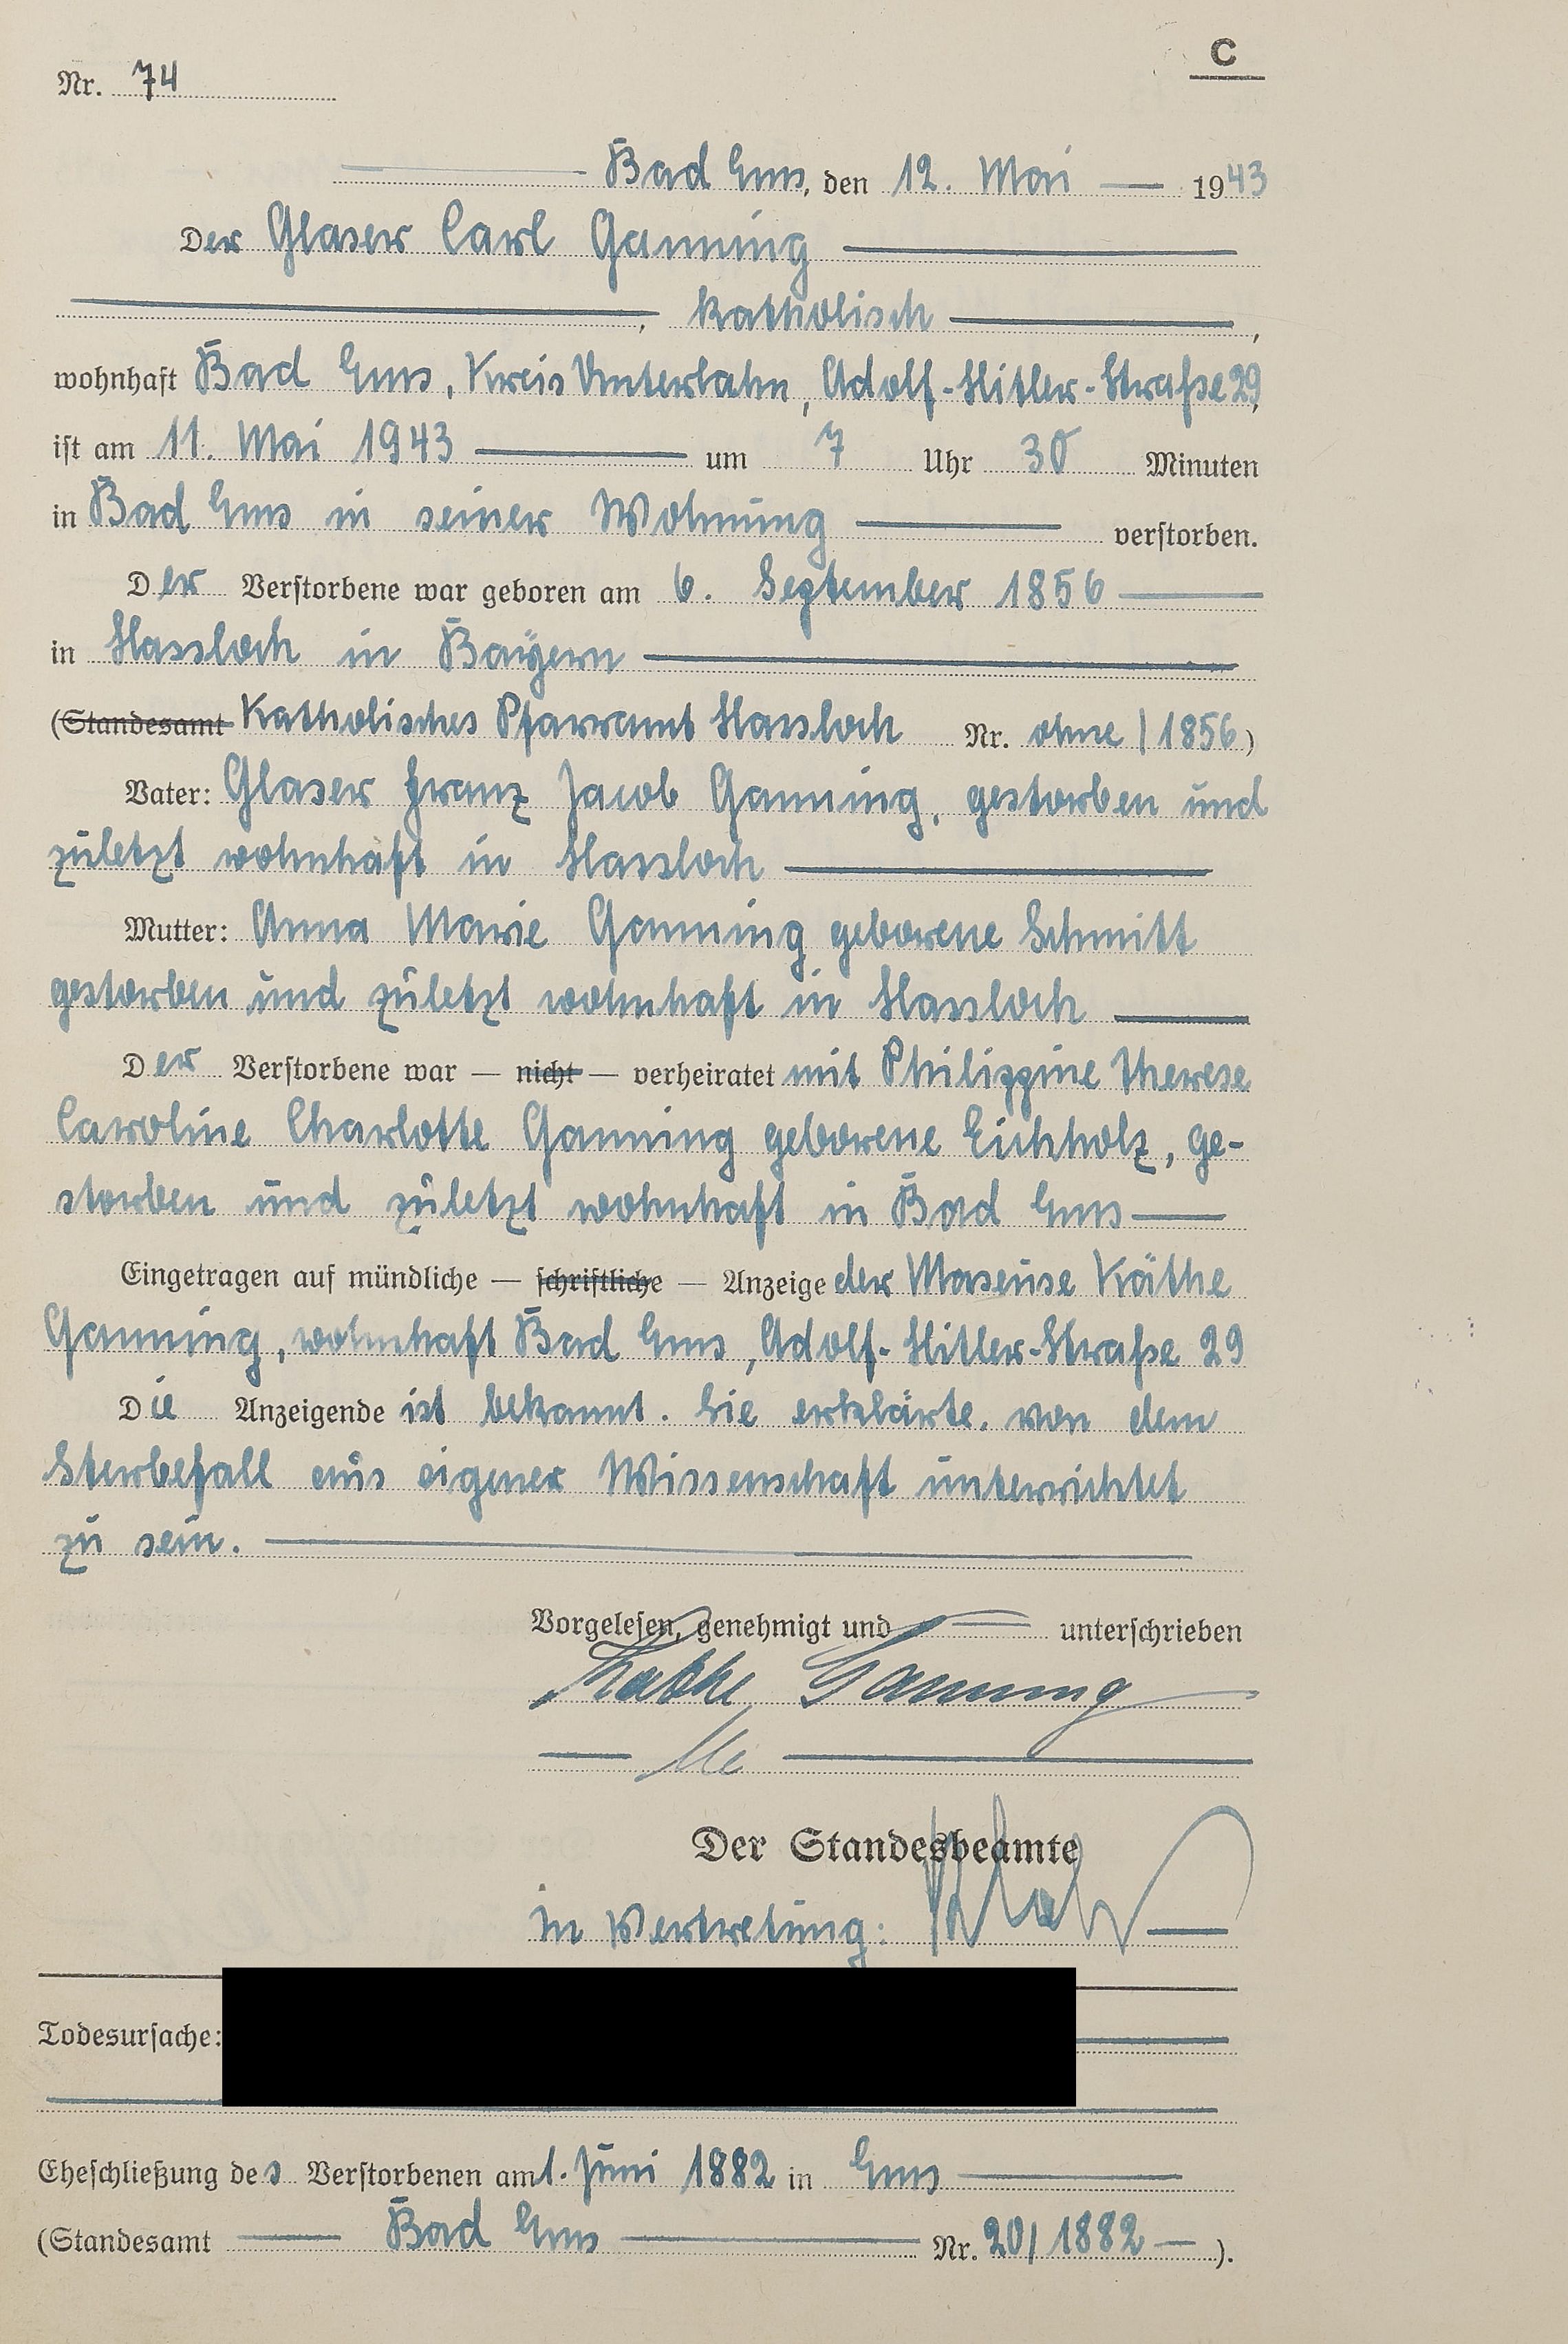 C
Nr. 74
Bad Ems, den 12. Mai 1943
Der Glaser Carl Ganning
, katholisch ,
wohnhaft Bad Ems, Kreis Unterlahn, Adolf-Hitler-Straße 29,
ist am 11. Mai 1943 um 7 Uhr 30 Minuten
in Bad Ems in seiner Wohnung verstorben.
Der Verstorbene war geboren am 6. September 1856
in Hassloch in Bayern
(Standesamt Katholisches Pfarramt Hassloch Nr. ohne/1856)
Vater: Glaser Franz Jacob Ganning, gestorben und
zuletzt wohnhaft in Hassloch
Mutter: Anna Marie Ganning geborene Schmitt
gestorben und zuletzt wohnhaft in Hassloch
Der Verstorbene war — nicht — verheiratet mit Philippine Therese
Caroline Charlotte Ganning geborene Eichholz, ge-
storben und zuletzt wohnhaft in Bad Ems
Eingetragen auf mündliche — schriftliche — Anzeige der Maseuse Käthe
Ganning, wohnhaft Bad Ems, Adolf-Hitler-Straße 29
Die Anzeigende ist bekannt. Sie erklärte, von dem
Sterbefall aus eigener Wissenschaft unterrichtet
zu sein.
Vorgelesen, genehmigt und unterschrieben
Käthe Ganning
Der Standesbeamte
In Vertretung:
Todesursache:
Eheschließung des Verstorbenen am 1. Juni 1882 in Ems
(Standesamt Bad Ems Nr. 20/1882 ).